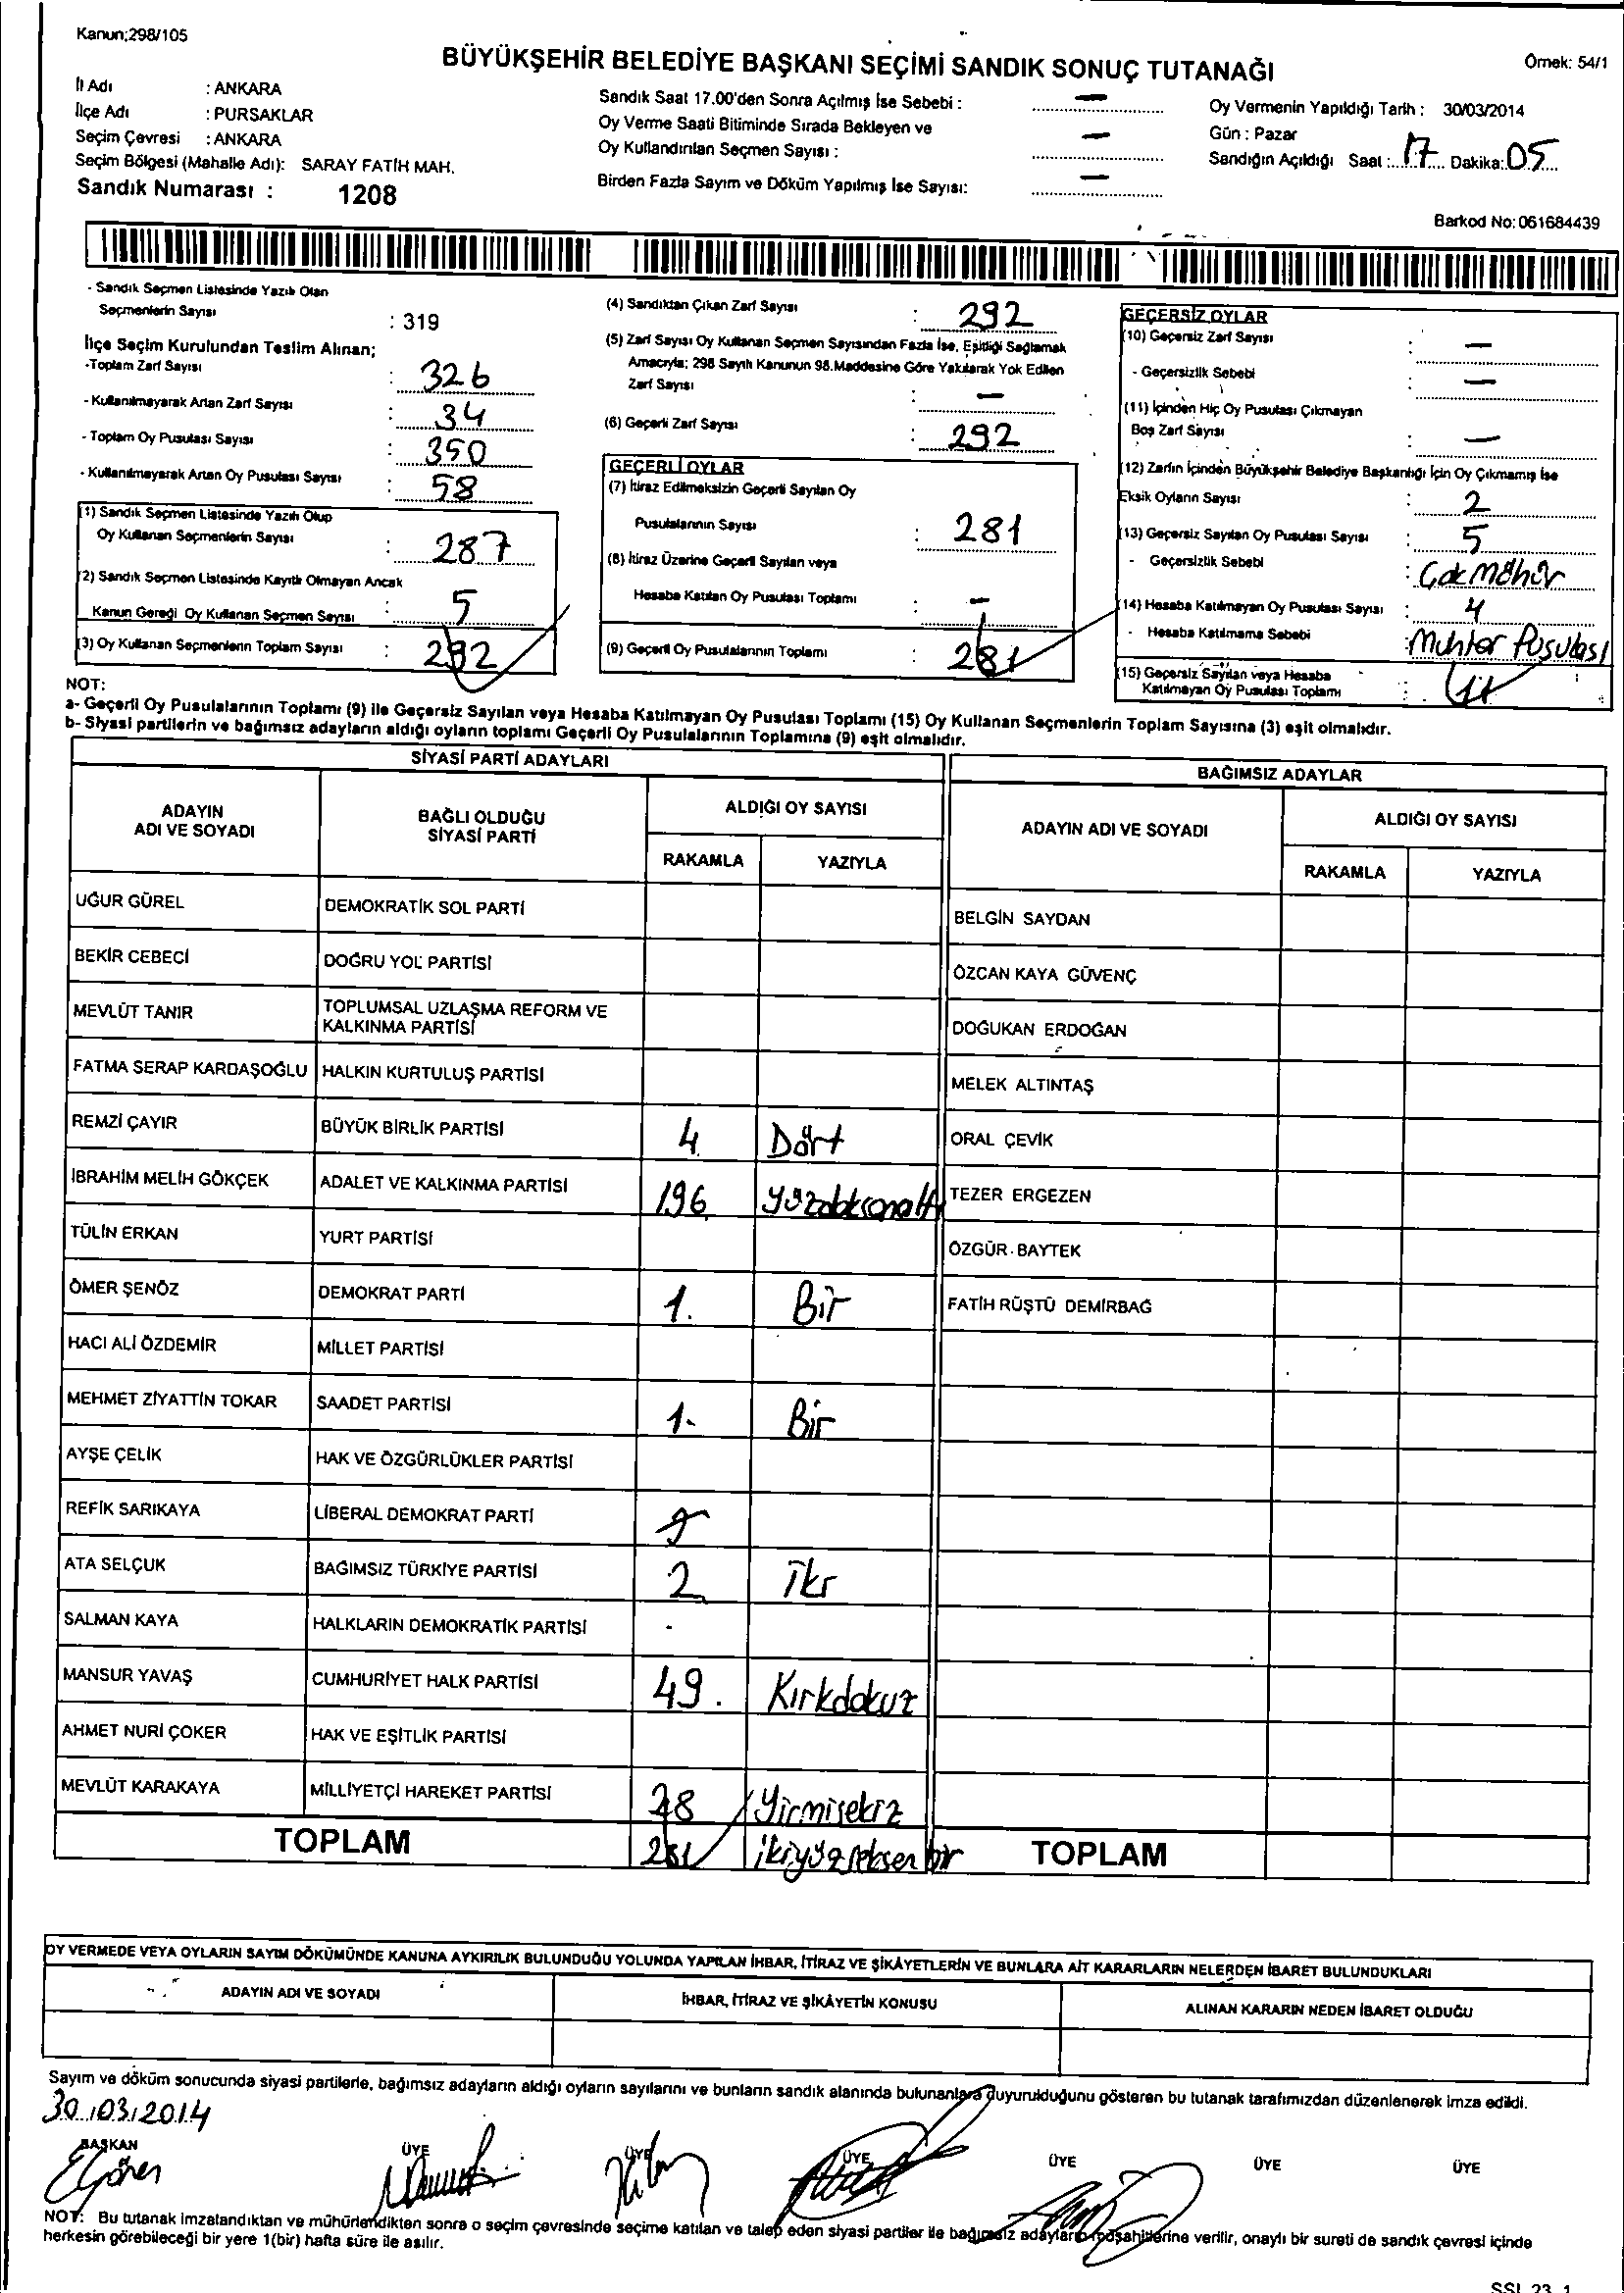 Kanun;298/105
BÜYÜKŞEHİR BELEDİYE BAŞKANI SEÇİMİ SANDIK SONUÇ TUTANAĞI
Örnek: 54/1
İl Adı : ANKARA
İlçe Adı : PURSAKLAR
Seçim Çevresi : ANKARA
Seçim Bölgesi (Mahalle Adı): SARAY FATİH MAH.
Sandık Numarası : 1208
Sandık Saat 17.00'den Sonra Açılmış İse Sebebi : —
Oy Verme Saati Bitiminde Sırada Bekleyen ve
Oy Kullandırılan Seçmen Sayısı : —
Birden Fazla Sayım ve Döküm Yapılmış İse Sayısı: —
Oy Vermenin Yapıldığı Tarih : 30/03/2014
Gün : Pazar
Sandığın Açıldığı Saat : 17 Dakika: 05
Barkod No: 061684439
- Sandık Seçmen Listesinde Yazılı Olan
Seçmenlerin Sayısı : 319
İlçe Seçim Kurulundan Teslim Alınan;
-Toplam Zarf Sayısı : 326
- Kullanılmayarak Artan Zarf Sayısı : 34
- Toplam Oy Pusulası Sayısı : 350
- Kullanılmayarak Artan Oy Pusulası Sayısı : 58
(1) Sandık Seçmen Listesinde Yazılı Olup
Oy Kullanan Seçmenlerin Sayısı : 287
(2) Sandık Seçmen Listesinde Kayıtlı Olmayan Ancak
Kanun Gereği Oy Kullanan Seçmen Sayısı : 5
(3) Oy Kullanan Seçmenlerin Toplam Sayısı : 292
(4) Sandıktan Çıkan Zarf Sayısı : 292
(5) Zarf Sayısı Oy Kullanan Seçmen Sayısından Fazla İse, Eşitliği Sağlamak
Amacıyla; 298 Sayılı Kanunun 98.Maddesine Göre Yakılarak Yok Edilen
Zarf Sayısı : —
(6) Geçerli Zarf Sayısı : 292
GEÇERLİ OYLAR
(7) İtiraz Edilmeksizin Geçerli Sayılan Oy
Pusulalarının Sayısı : 281
(8) İtiraz Üzerine Geçerli Sayılan veya
Hesaba Katılan Oy Pusulası Toplamı : —
(9) Geçerli Oy Pusulalarının Toplamı : 281
GEÇERSİZ OYLAR
(10) Geçersiz Zarf Sayısı : —
- Geçersizlik Sebebi : —
(11) İçinden Hiç Oy Pusulası Çıkmayan
Boş Zarf Sayısı : —
(12) Zarfın İçinden Büyükşehir Belediye Başkanlığı İçin Oy Çıkmamış İse
Eksik Oyların Sayısı : 2
(13) Geçersiz Sayılan Oy Pusulası Sayısı : 5
- Geçersizlik Sebebi : Çok Mühür
(14) Hesaba Katılmayan Oy Pusulası Sayısı : 4
- Hesaba Katılmama Sebebi : Muhtar Pusulası
(15) Geçersiz Sayılan veya Hesaba
Katılmayan Oy Pusulası Toplamı : 11
NOT:
a- Geçerli Oy Pusulalarının Toplamı (9) ile Geçersiz Sayılan veya Hesaba Katılmayan Oy Pusulası Toplamı (15) Oy Kullanan Seçmenlerin Toplam Sayısına (3) eşit olmalıdır.
b- Siyasi partilerin ve bağımsız adayların aldığı oyların toplamı Geçerli Oy Pusulalarının Toplamına (9) eşit olmalıdır.
SİYASİ PARTİ ADAYLARI
ADAYIN ADI VE SOYADI BAĞLI OLDUĞU SİYASİ PARTİ ALDIĞI OY SAYISI
RAKAMLA YAZIYLA
UĞUR GÜREL DEMOKRATİK SOL PARTİ
BEKİR CEBECİ DOĞRU YOL PARTİSİ
MEVLÜT TANIR TOPLUMSAL UZLAŞMA REFORM VE KALKINMA PARTİSİ
FATMA SERAP KARDAŞOĞLU HALKIN KURTULUŞ PARTİSİ
REMZİ ÇAYIR BÜYÜK BİRLİK PARTİSİ 4 Dört
İBRAHİM MELİH GÖKÇEK ADALET VE KALKINMA PARTİSİ 196 yüzdoksanaltı
TÜLİN ERKAN YURT PARTİSİ
ÖMER ŞENÖZ DEMOKRAT PARTİ 1. Bir
HACI ALİ ÖZDEMİR MİLLET PARTİSİ
MEHMET ZİYATTİN TOKAR SAADET PARTİSİ 1. Bir
AYŞE ÇELİK HAK VE ÖZGÜRLÜKLER PARTİSİ
REFİK SARIKAYA LİBERAL DEMOKRAT PARTİ
ATA SELÇUK BAĞIMSIZ TÜRKİYE PARTİSİ 2 İki
SALMAN KAYA HALKLARIN DEMOKRATİK PARTİSİ -
MANSUR YAVAŞ CUMHURİYET HALK PARTİSİ 49. Kırkdokuz
AHMET NURİ ÇOKER HAK VE EŞİTLİK PARTİSİ
MEVLÜT KARAKAYA MİLLİYETÇİ HAREKET PARTİSİ 28 Yirmisekiz
TOPLAM 281 ikiyüzseksenbir
BAĞIMSIZ ADAYLAR
ADAYIN ADI VE SOYADI ALDIĞI OY SAYISI
RAKAMLA YAZIYLA
BELGİN SAYDAN
ÖZCAN KAYA GÜVENÇ
DOĞUKAN ERDOĞAN
MELEK ALTINTAŞ
ORAL ÇEVİK
TEZER ERGEZEN
ÖZGÜR BAYTEK
FATİH RÜŞTÜ DEMİRBAĞ
TOPLAM
OY VERMEDE VEYA OYLARIN SAYIM DÖKÜMÜNDE KANUNA AYKIRILIK BULUNDUĞU YOLUNDA YAPILAN İHBAR, İTİRAZ VE ŞİKÂYETLERİN VE BUNLARA AİT KARARLARIN NELERDEN İBARET BULUNDUKLARI
ADAYIN ADI VE SOYADI İHBAR, İTİRAZ VE ŞİKÂYETİN KONUSU ALINAN KARARIN NEDEN İBARET OLDUĞU
Sayım ve döküm sonucunda siyasi partilerle, bağımsız adayların aldığı oyların sayılarını ve bunların sandık alanında bulunanlara duyurulduğunu gösteren bu tutanak tarafımızdan düzenlenerek imza edildi.
30/03/2014
BAŞKAN ÜYE ÜYE ÜYE ÜYE ÜYE ÜYE
NOT: Bu tutanak imzalandıktan ve mühürlendikten sonra o seçim çevresinde seçime katılan ve talep eden siyasi partiler ile bağımsız adayların müşahitlerine verilir, onaylı bir sureti de sandık çevresi içinde
herkesin görebileceği bir yere 1(bir) hafta süre ile asılır.
SSI 23 1